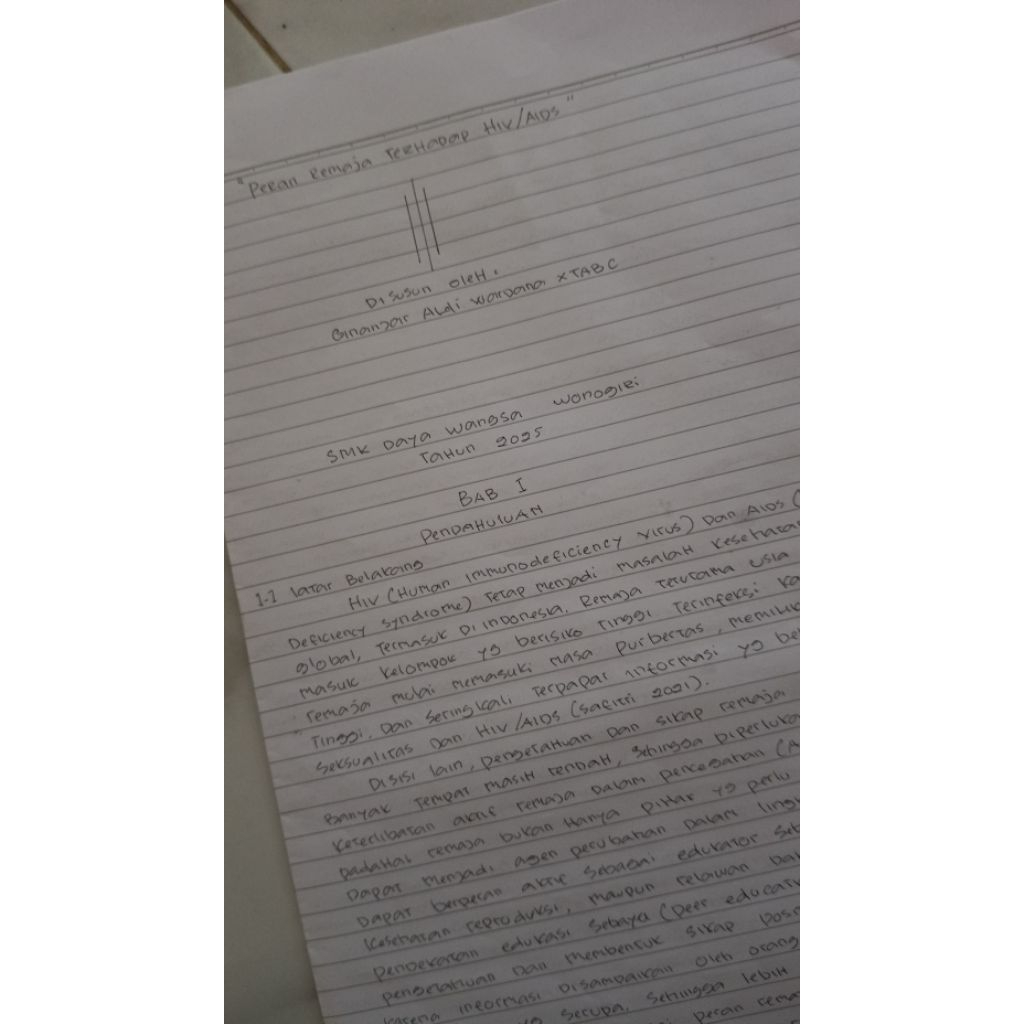 "Peran Remaja Terhadap HIV/AIDS"
Disusun oleh.
Ginanjar Aldi Wardana XTABC
SMK Daya Wangsa Wonogiri
Tahun 2025
BAB I
PENDAHULUAN
1.1 latar Belakang
HIV (Human Immunodeficiency virus) Dan AIDS (
Deficiency Syndrome) Tetap menjadi masalah kesehatan
global, Termasuk Di indonesia. Remaja terutama usia
masuk kelompok yg berisiko Tinggi Terinfeksi ka
remaja mulai memasuki masa purbertas, memilik
Tinggi, Dan seringkali Terpapar informasi yg be
seksualitas Dan HIV/AIDS (Safitri 2021).
Disisi lain, pengetahuan Dan sikap remaja
Banyak Tempat masih rendah, sehingga Diperluka
keterlibatan aktif remaja Dalam pencegahan (A
padahal remaja bukan Hanya pihak yg perlu
Dapat menjadi agen perubahan Dalam ling
Dapat berperan aktif sebagai edukator seb
kesehatan reproduksi, maupun relawan Da
pendekatan edukasi sebaya (peer educat
pengetahuan Dan membentuk sikap pos
karena informasi Disampaikan oleh orang
serupa, sehingga lebih
peran rema